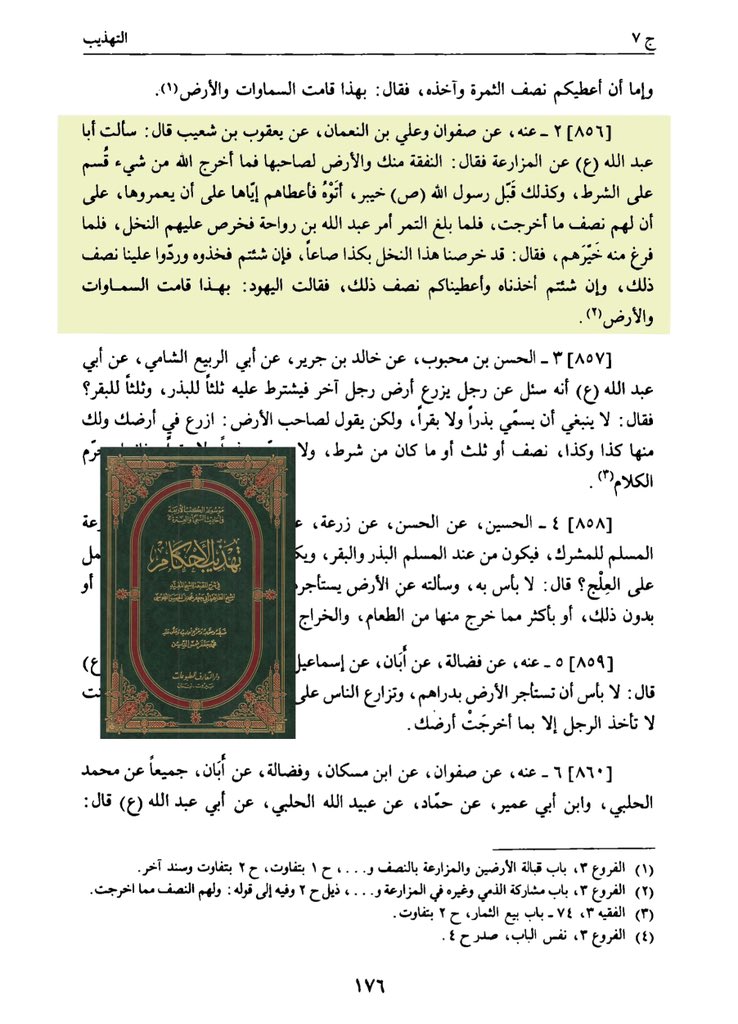 ج ٧
التهذيب
وإما أن أعطيكم نصف الثمرة وآخذه، فقال: بهذا قامت السماوات والأرض(١).
[٨٥٦] ٢ ـ عنه، عن صفوان وعلي بن النعمان، عن يعقوب بن شعيب قال: سألت أبا
عبد الله (ع) عن المزارعة فقال: النفقة منك والأرض لصاحبها فما أخرج الله من شيء قُسم
على الشرط، وكذلك قَبّل رسول الله (ص) خيبر، أتَوْهُ فأعطاهم إيّاها على أن يعمروها، على
أن لهم نصف ما أخرجت، فلما بلغ التمر أمر عبد الله بن رواحة فخرص عليهم النخل، فلما
فرغ منه خَيّرَهم، فقال: قد خرصنا هذا النخل بكذا صاعاً، فإن شئتم فخذوه وردّوا علينا نصف
ذلك، وإن شئتم أخذناه وأعطيناكم نصف ذلك، فقالت اليهود: بهـذا قامت السمـاوات
والأرض(٢).
[٨٥٧] ٣ ـ الحسن بن محبوب، عن خالد بن جرير، عن أبي الربيع الشامي، عن أبي
عبد الله (ع) أنه سئل عن رجل يزرع أرض رجل آخر فيشترط عليه ثلثاً للبذر، وثلثاً للبقر؟
فقال: لا ينبغي أن يسمّي بذراً ولا بقراً، ولكن يقول لصاحب الأرض: ازرع في أرضك ولك
منها كذا وكذا، نصف أو ثلث أو ما كان من شرط، ولا
الكلام(٣).
[٨٥٨] ٤ ـ الحسين، عن الحسن، عن زرعة،
المسلم للمشرك، فيكون من عند المسلم البذر والبقر،
على العِلْج؟ قال: لا بأس به، وسألته عن الأرض أو
بدون ذلك، أو بأكثر مما خرج منها من الطعام، والخراج
[٨٥٩] ٥ ـ عنه، عن فضالة، عن أبَان، عن (ع)
قال: لا بأس أن تستأجر الأرض بدراهم، وتزارع الناس
لا تأخذ الرجل إلا بما أخرجَتْ أرضك.
تهذيب الأحكام
دار التعارف للمطبوعات
[٨٦٠] ٦ ـ عنه، عن صفوان، عن ابن مسكان، وفضالة، عن أَبَان، جميعاً عن محمد
الحلبي، وابن أبي عمير، عن حمّاد، عن عبيد الله الحلبي، عن أبي عبد الله (ع) قال:
(١) الفروع ٣، باب قبالة الأرضين والمزارعة بالنصف و...، ح ١ بتفاوت، ح ٢ بتفاوت وسند آخر.
(٢) الفروع ٣، باب مشاركة الذمي وغيره في المزارعة و...، ذيل ح ٢ وفيه إلى قوله: ولهم النصف مما اخرجت.
(٣) الفقيه ٣، ٧٤ ـ باب بيع الثمار، ح ٢ بتفاوت.
(٤) الفروع ٣، نفس الباب، صدر ح ٤.
١٧٦